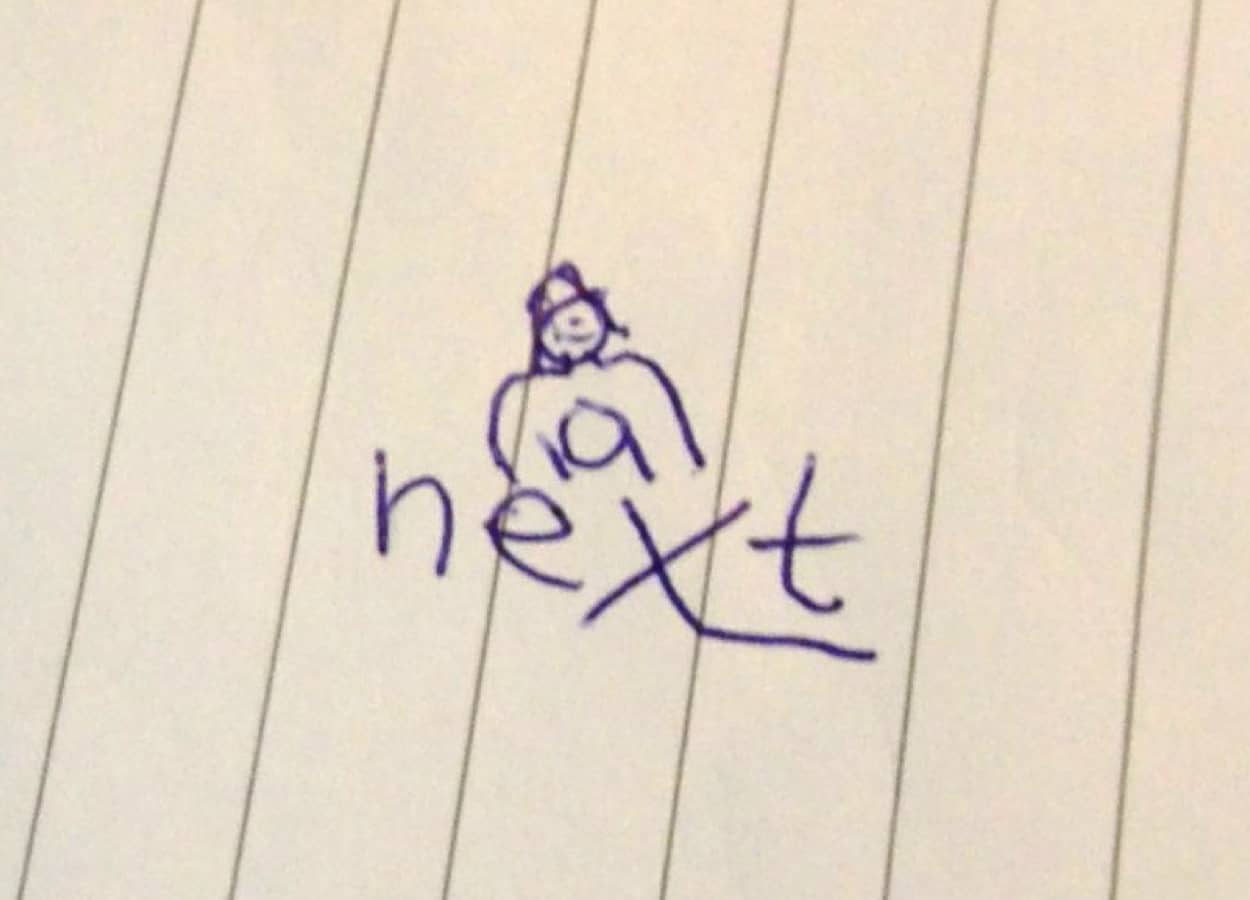 a
next